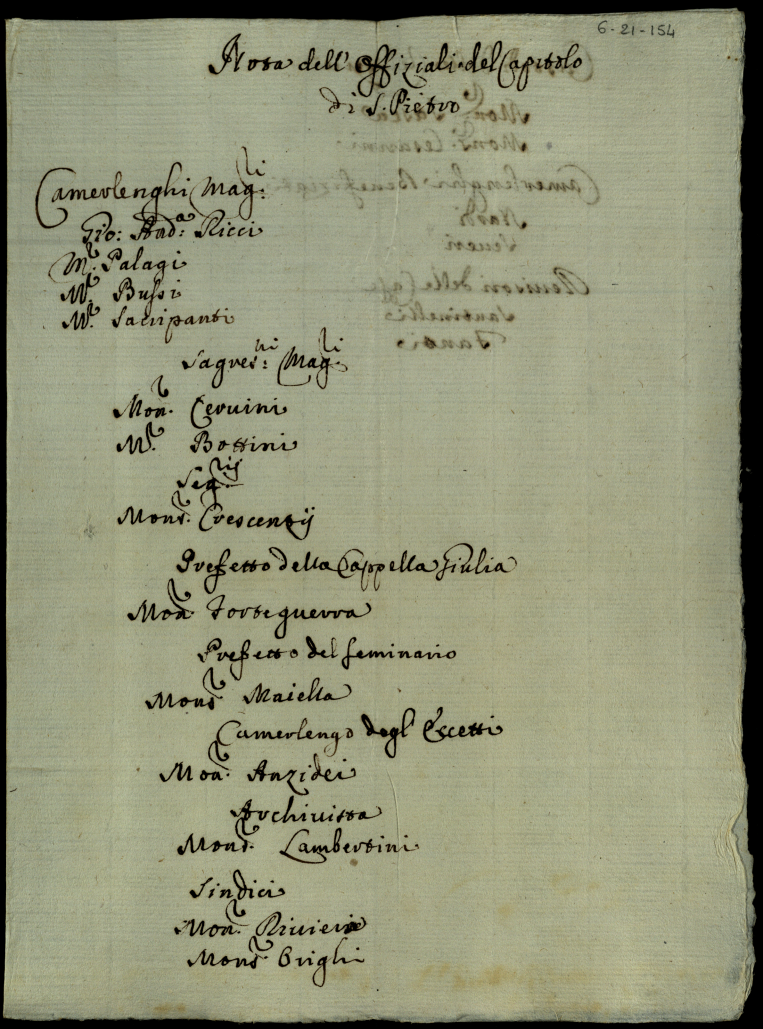 6-21-154
Nota dell' Offiziali del Capitolo
di S. Pietro
Camerlenghi Mag.li
Gio: And.a Ricci
M.r Palagi
M.r Bussi
M.r Sacripanti
Sagres.ni Mag.li
Mon.r Ceruini
M.r Bottini
Seg.rij
Mons.r Crescentij
Prefetto della Cappella Giulia
Mon.r Forteguerra
Prefetto del Seminario
Mons.r Maiella
Camerlengo degl' Eccetti
Mon.r Anzidei
Archiuista
Mons.r Lambertini
Sindici
Mon.r Riuiera
Mons.r Brighi